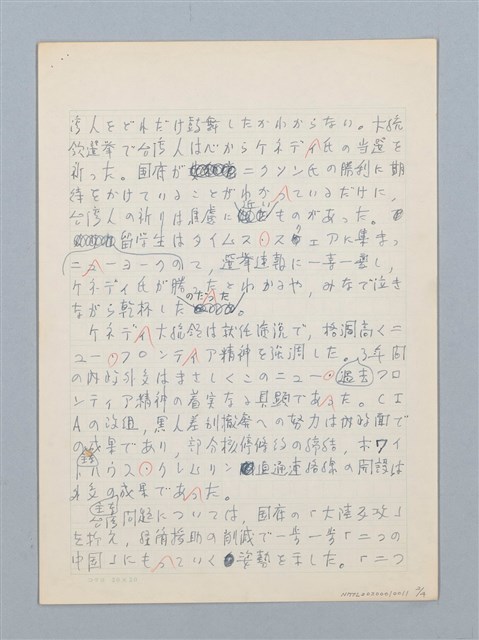 湾人をどれだけ鼓舞したかわからない。大統
領選挙で台湾人は心からケネディ氏の当選を
祈った。国府がニクソン氏の勝利に期
待をかけていることがわかっているだけに、
台湾人の祈りは焦慮に近いものがあった。
留学生はタイムス・スクェアに集まっ
ニューヨークので、選挙速報に一喜一憂し、
ケネディ氏が勝ったのだったとわかるや、みなで泣き
ながら乾杯した。
ケネディ大統領は就任演説で、格調高くニ
ュー・フロンティア精神を強調した。3年間
の内政外交はまさしくこのニュー・過去フロ
ンティア精神の着実なる具顕であった。CI
Aの改組、黒人差別撤廃への努力は内政面で
の主な成果であり、部分核停条約の締結、ホワイ
トハウス・クレムリン直通連絡線の開設は
外交の主な成果であった。
台湾問題については、国府の「大陸反攻」
を抑え、経済援助の削減で一歩一歩「二つの
中国」にもっていく姿勢を示した。「二つ
NMTL00500010011 2/9